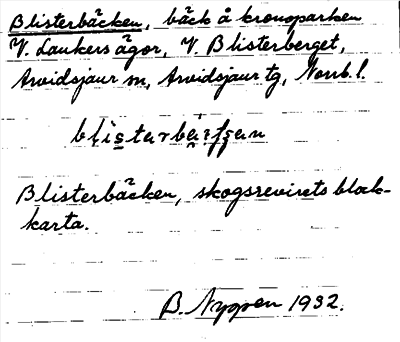 Blisterbäcken, bäck å kronoparken
V. Laukers ägor, V. Blisterberget,
Arvidsjaur sn, Arvidsjaur tg, Norrb. l.
Blisterbäcken, skogsrevirets block-
karta.
B. Nyppen 1932.